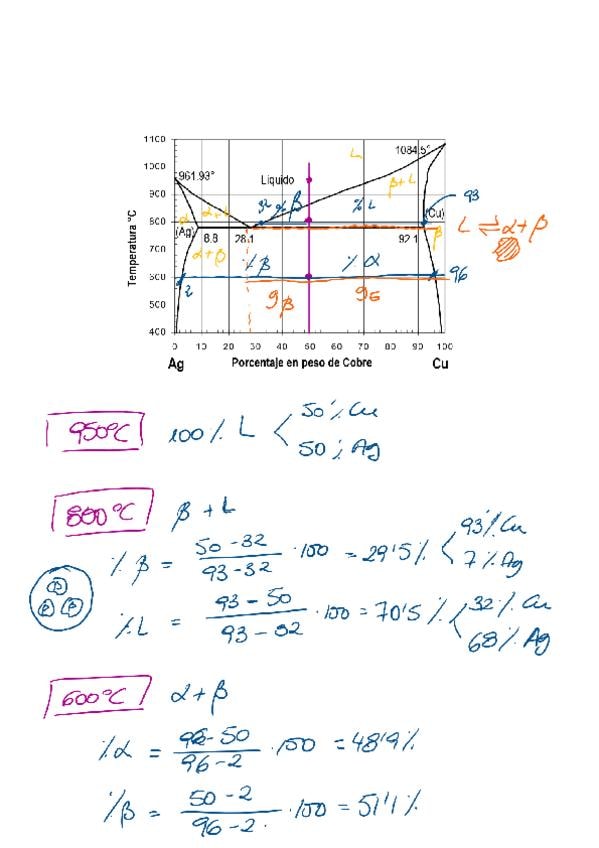 1100
1000
900
800
700
600
500
400
Temperatura ºC
961.93°
1084.5°
Líquido
L
α
α+L
β+L
32 % β
% L
93
(Ag)
(Cu)
8.8
28.1
92.1
β
α+β
L ⇌ α+β
% β
% α
96
2
9β
0 10 20 30 40 50 60 70 80 90 100
Ag Porcentaje en peso de Cobre Cu
950ºC 100% L
50% Cu
50% Ag
800ºC β + L
% β = 50-32 / 93-32 · 100 = 29'5%
93% Cu
7% Ag
β
β β
% L = 93-50 / 93-32 · 100 = 70'5%
32% Cu
68% Ag
600ºC α+β
% α = 96-50 / 96-2 · 100 = 48'9%
% β = 50-2 / 96-2 · 100 = 51'1%